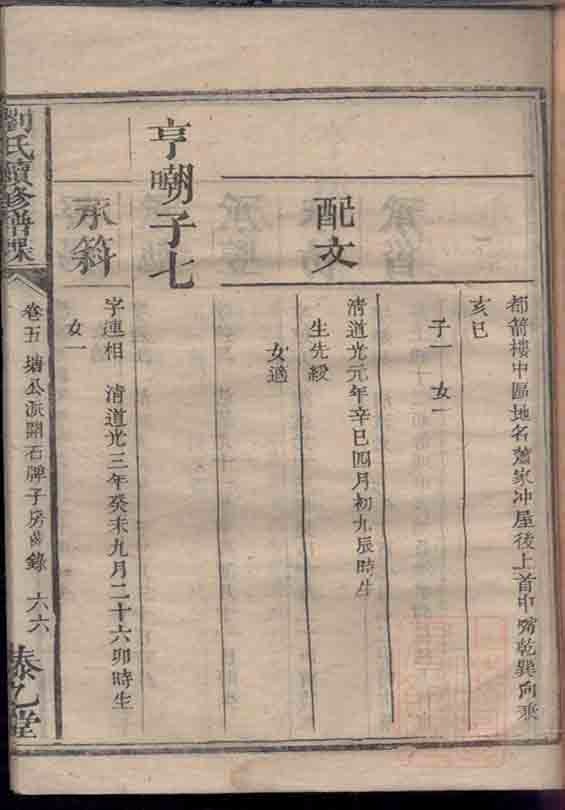 都箭樓中區地名蕭家冲屋後上首中嘴乾巽向兼
亥巳
子一 女一
配文
清道光元年辛巳四月初九辰時生
生先綬
女適
亨嘲子七
承斜
字連相 清道光三年癸未九月二十六卯時生
女一
劉氏續修譜牒
卷五 塘公派開石牌子房齒錄 六六
泰乙堂